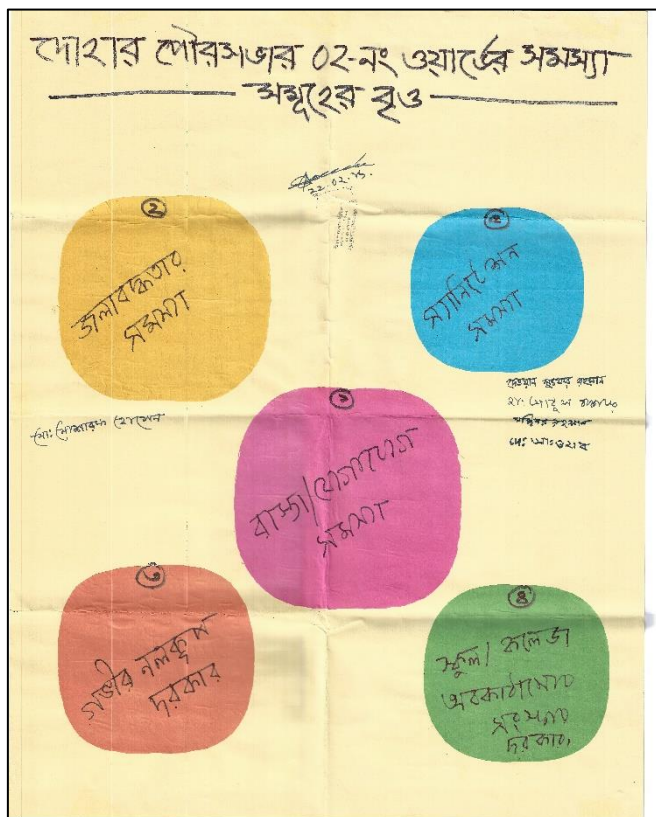 দোহার পৌরসভার ০২-নং ওয়ার্ডের সমস্যা
সমূহের বৃত্ত
২২.০২.১৫.
২
জলাবদ্ধতার
সমস্যা
স্যানিটেশন
সমস্যা
মো: মোশারফ হোসেন
১
রাস্তা/যোগাযোগ
সমস্যা
৩
গভীর নলকূপ
দরকার
৪
স্কুল/ কলেজ
অবকাঠামোর
দরকার,